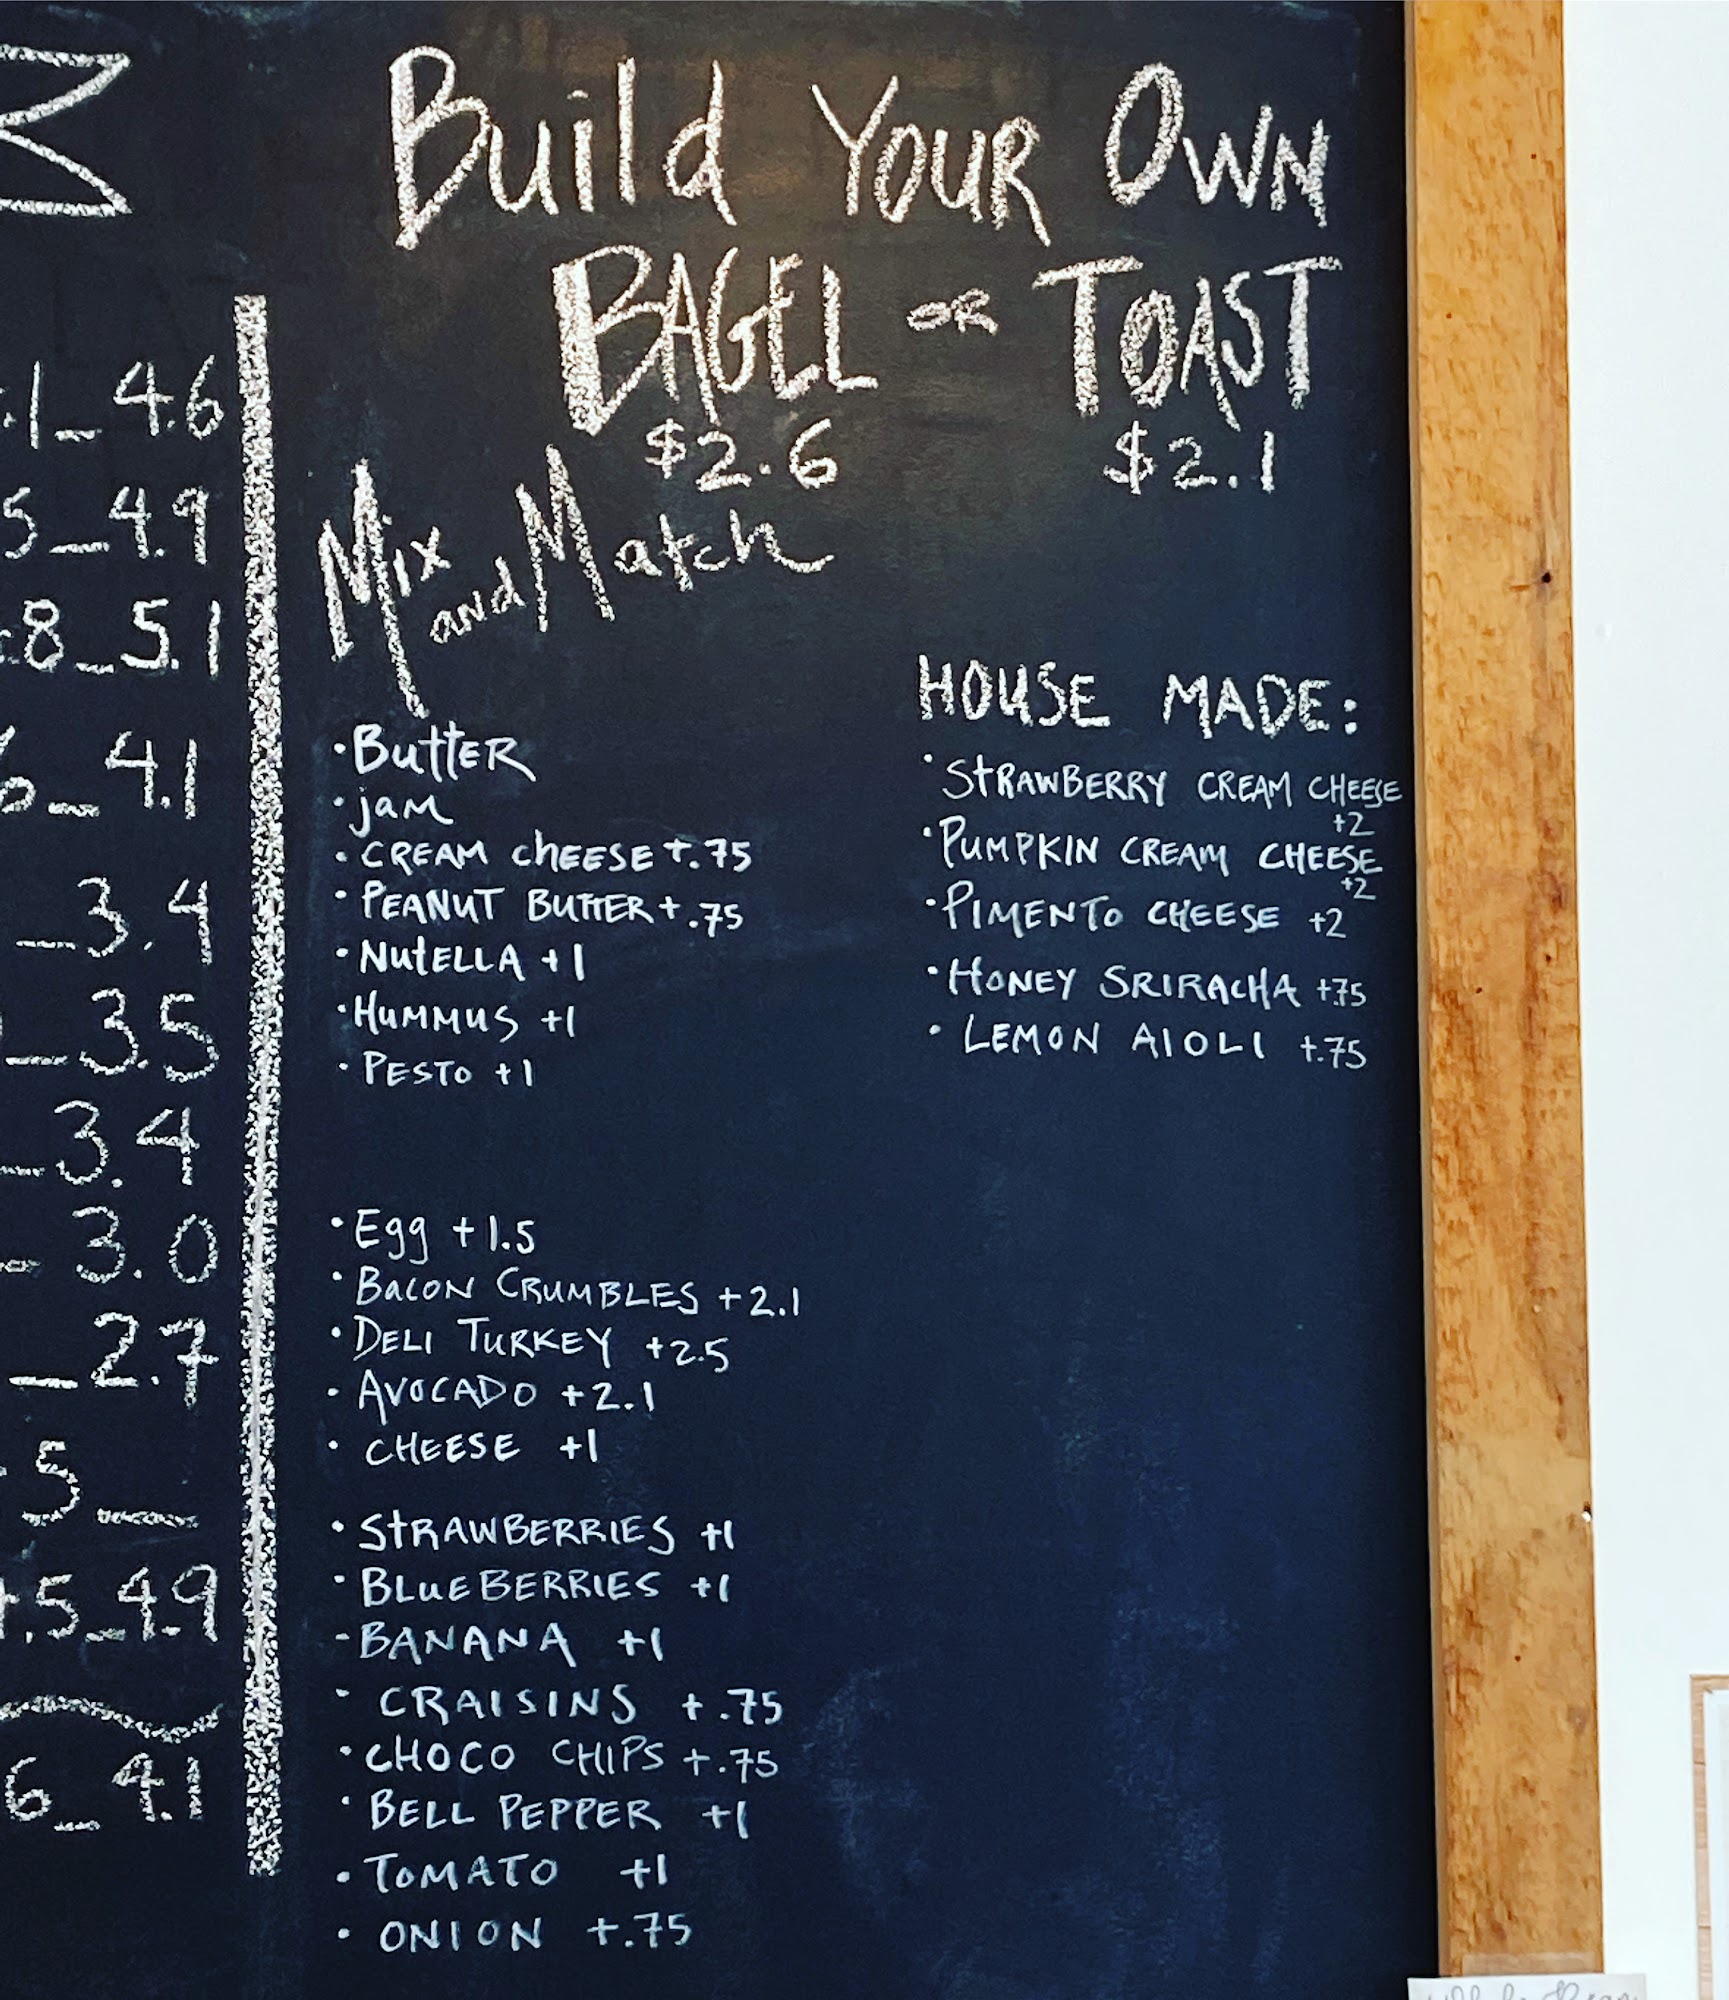 Build Your Own
BAGEL OR TOAST
$2.6 $2.1
Mix and Match
• Butter
• jam
• CREAM CHEESE +.75
• PEANUT BUTTER +.75
• NUTELLA +1
• HUMMUS +1
• PESTO +1
HOUSE MADE:
• STRAWBERRY CREAM CHEESE
+2
• PUMPKIN CREAM CHEESE
+2
• PIMENTO CHEESE +2
• HONEY SRIRACHA +.75
• LEMON AIOLI +.75
• Egg +1.5
• BACON CRUMBLES +2.1
• DELI TURKEY +2.5
• AVOCADO +2.1
• CHEESE +1
• STRAWBERRIES +1
• BLUEBERRIES +1
- BANANA +1
• CRAISINS +.75
• CHOCO CHIPS +.75
• BELL PEPPER +1
• TOMATO +1
• ONION +.75
.1_4.6
5_4.9
8_5.1
6_4.1
_3.4
_3.5
_3.4
_3.0
_2.7
5__
+.5_4.9
6_4.1